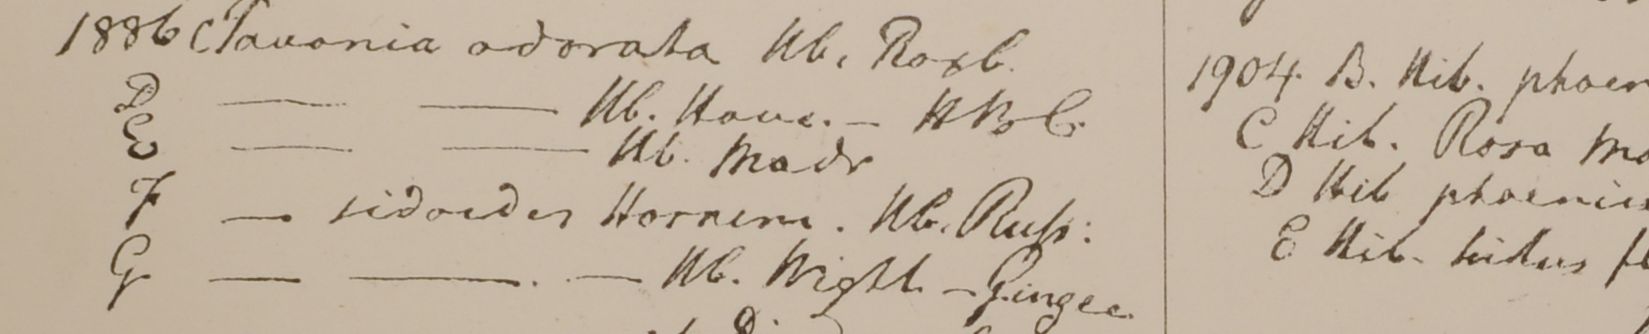 1886 C Pavonia adorata Hb. Roxb.
D — — Hb. Heyne. — H B C.
E — — Hb. Madr
F — sidoides Hornem. Hb. Russ:
G — — . — Hb. Wight — Gingee
1904. B. Hib. phoen
C Hib. Rosa Ma
D Hib phoenic
E Hib.